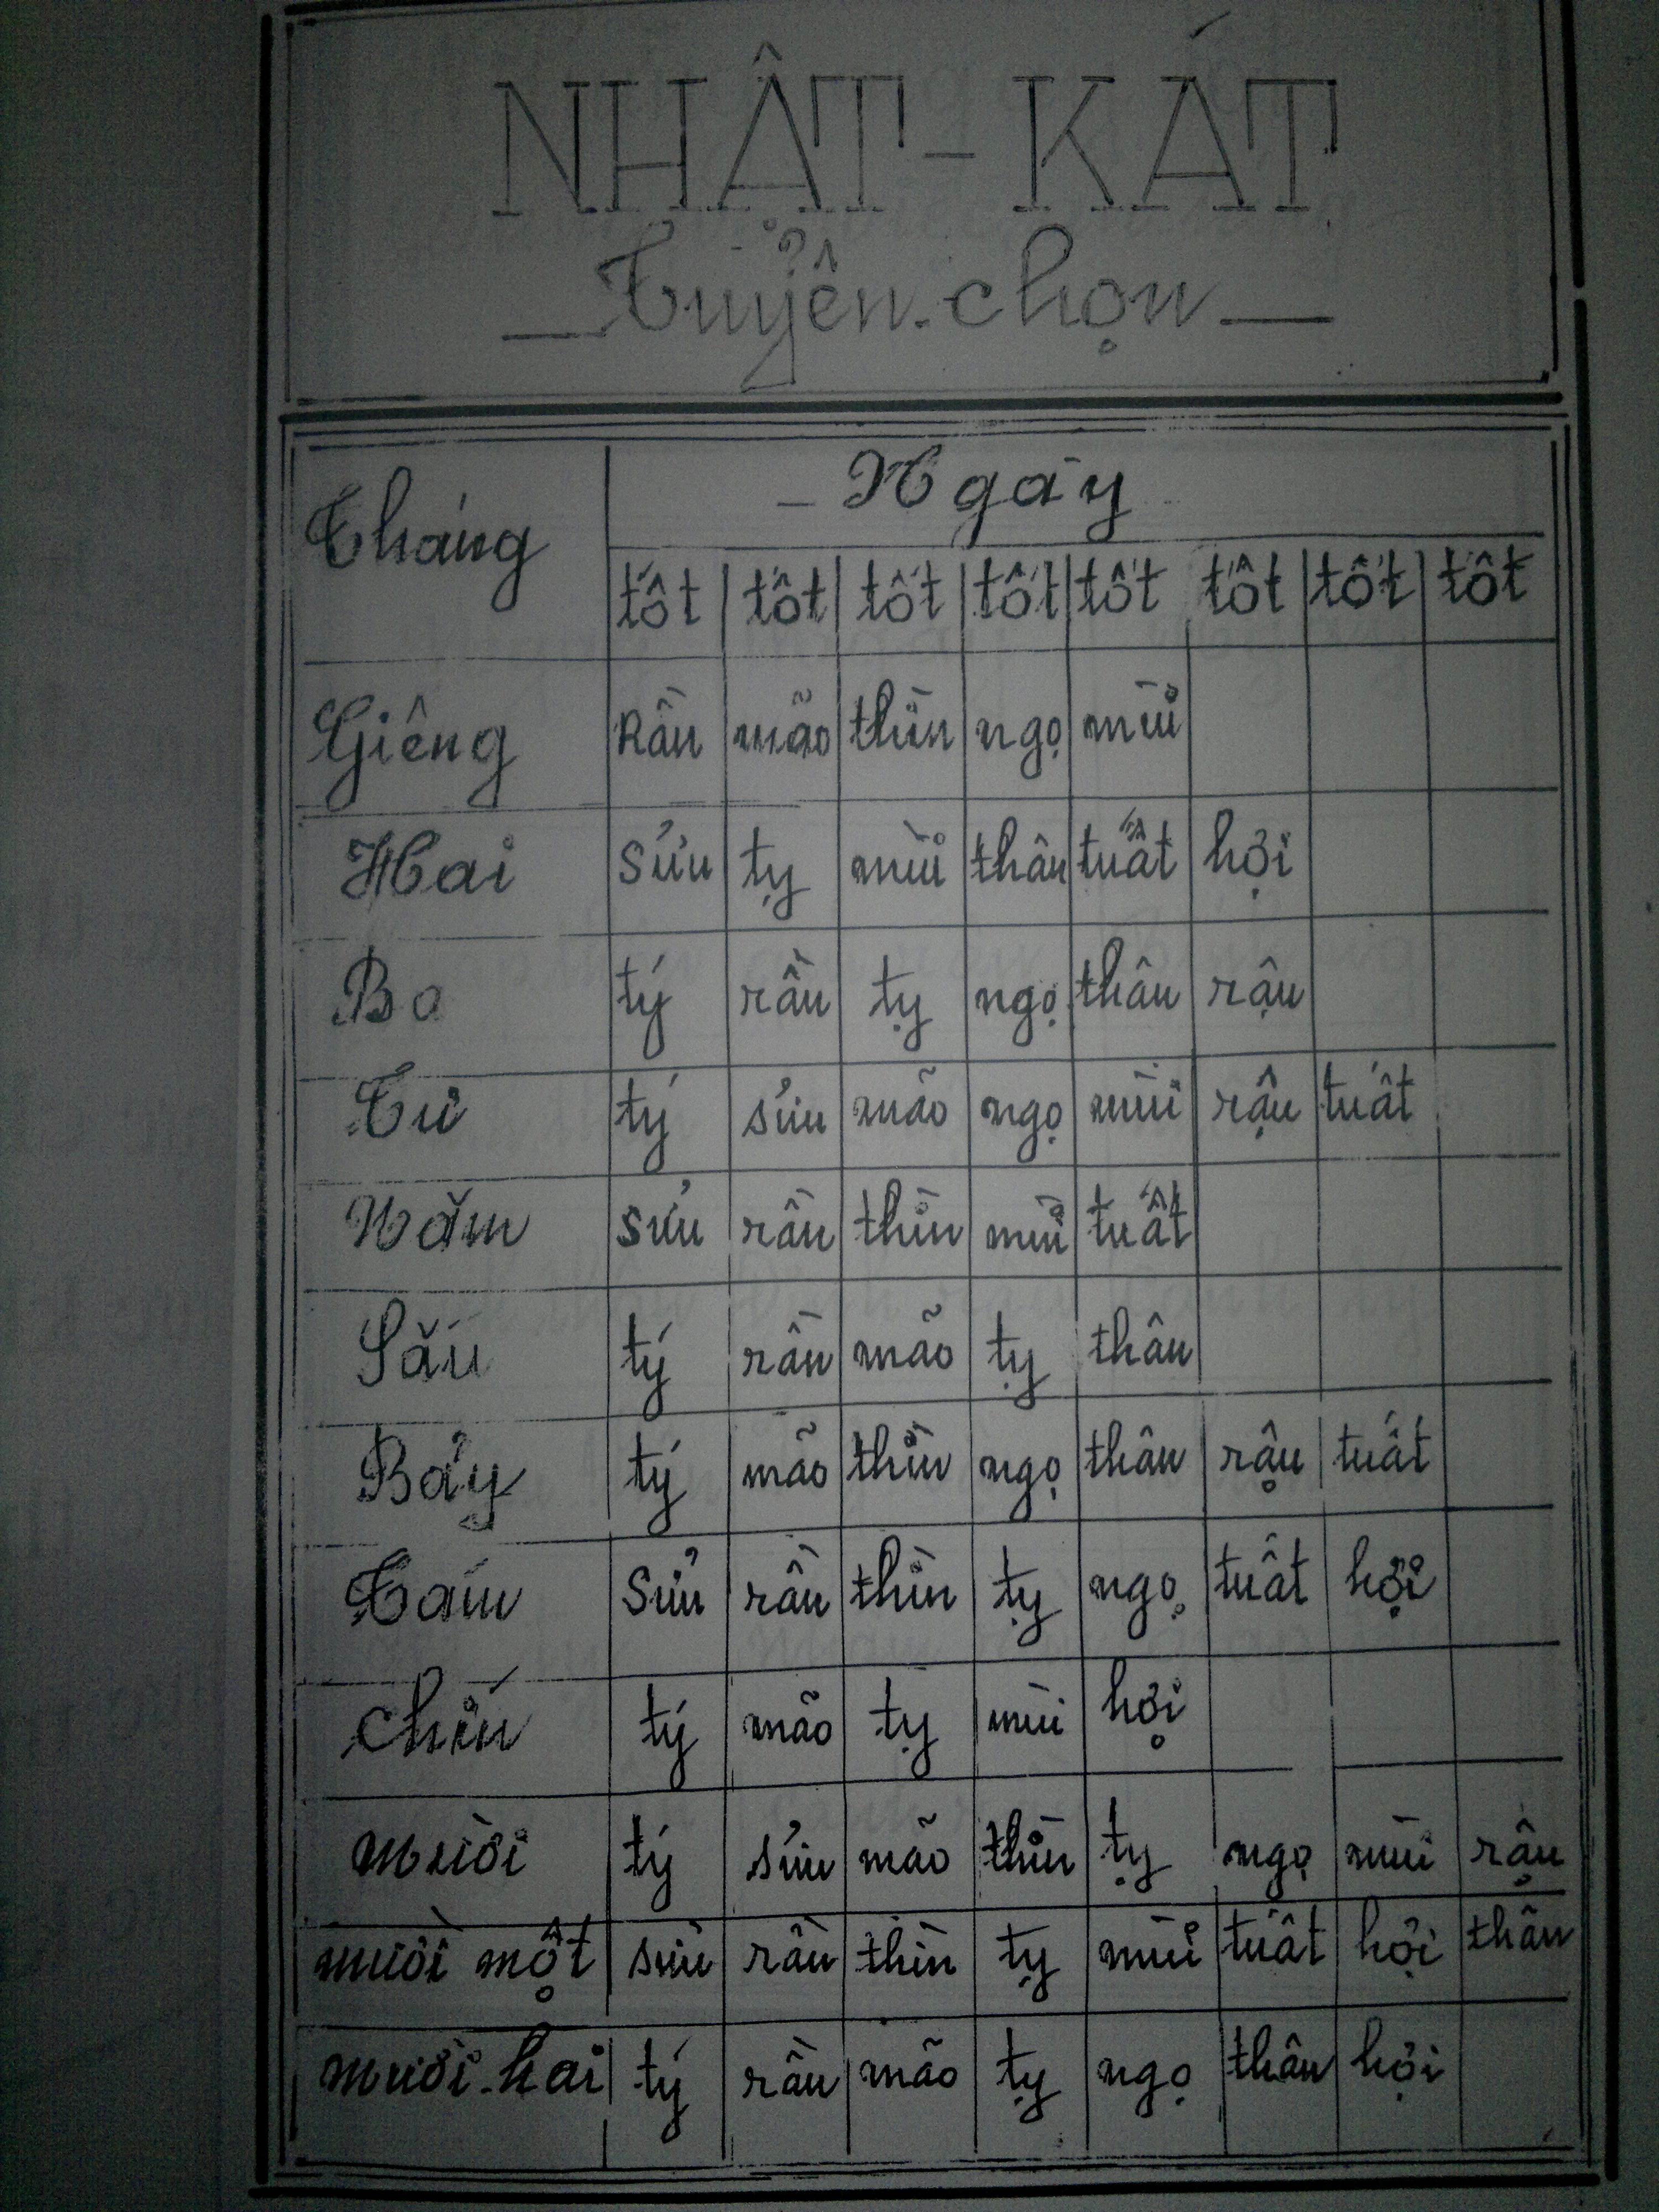 NHẬT - KÁT
Tuyển chọn
Tháng
- Ngày
tốt tốt tốt tốt tốt tốt tốt tốt
Giêng Rần mão thìn ngọ mùi
Hai Sửu tỵ mùi thân tuất hợi
Ba tý rần tỵ ngọ thân rậu
Tư tý sửu mão ngọ mùi rậu tuất
Năm sửu rần thìn mùi tuất
Sáu tý rần mão tỵ thân
Bảy tý mão thìn ngọ thân rậu tuất
Tám Sửu rần thìn tỵ ngọ tuất hợi
Chín tý mão tỵ mùi hợi
mười tý sửu mão thìn tỵ ngọ mùi rậu
mười một sửu rần thìn tỵ mùi tuất hợi thân
mười hai tý rần mão tỵ ngọ thân hợi